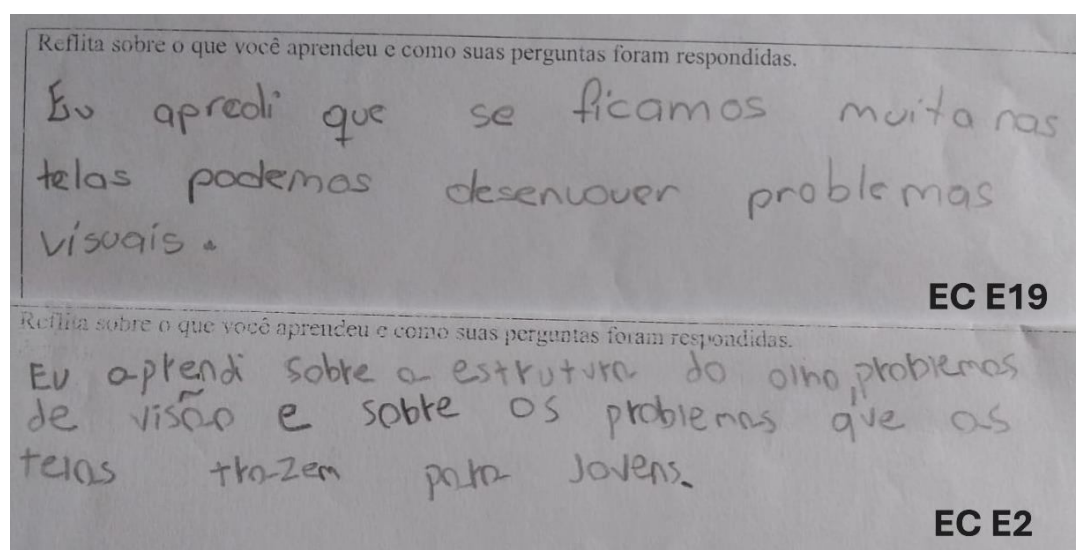 Reflita sobre o que você aprendeu e como suas perguntas foram respondidas.
Eu apredi que se ficamos muita nas
telas podemos desenvouer problemas
visuais.
EC E19
Reflita sobre o que você aprendeu e como suas perguntas foram respondidas.
Eu aprendi sobre a estrutura do olho, problemas
de visão e sobre os problemas que as
telas trazem para Jovens.
EC E2